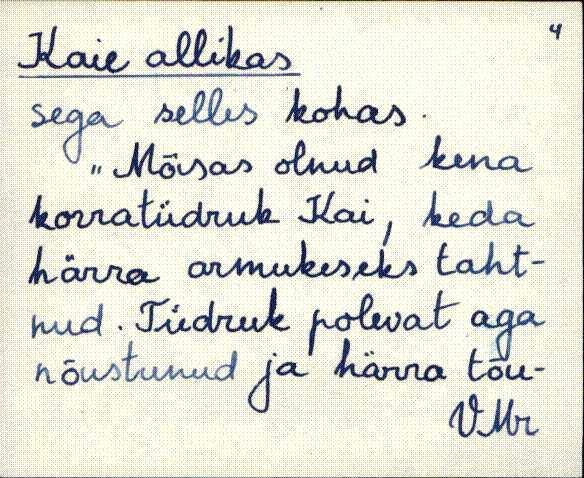 4
Kaie allikas
sega selles kohas.
„Mõisas olnud kena
korratüdruk Kai, keda
härra armukeseks taht-
nud. Tüdruk polevat aga
nõustunud ja härra tõu-
VMr